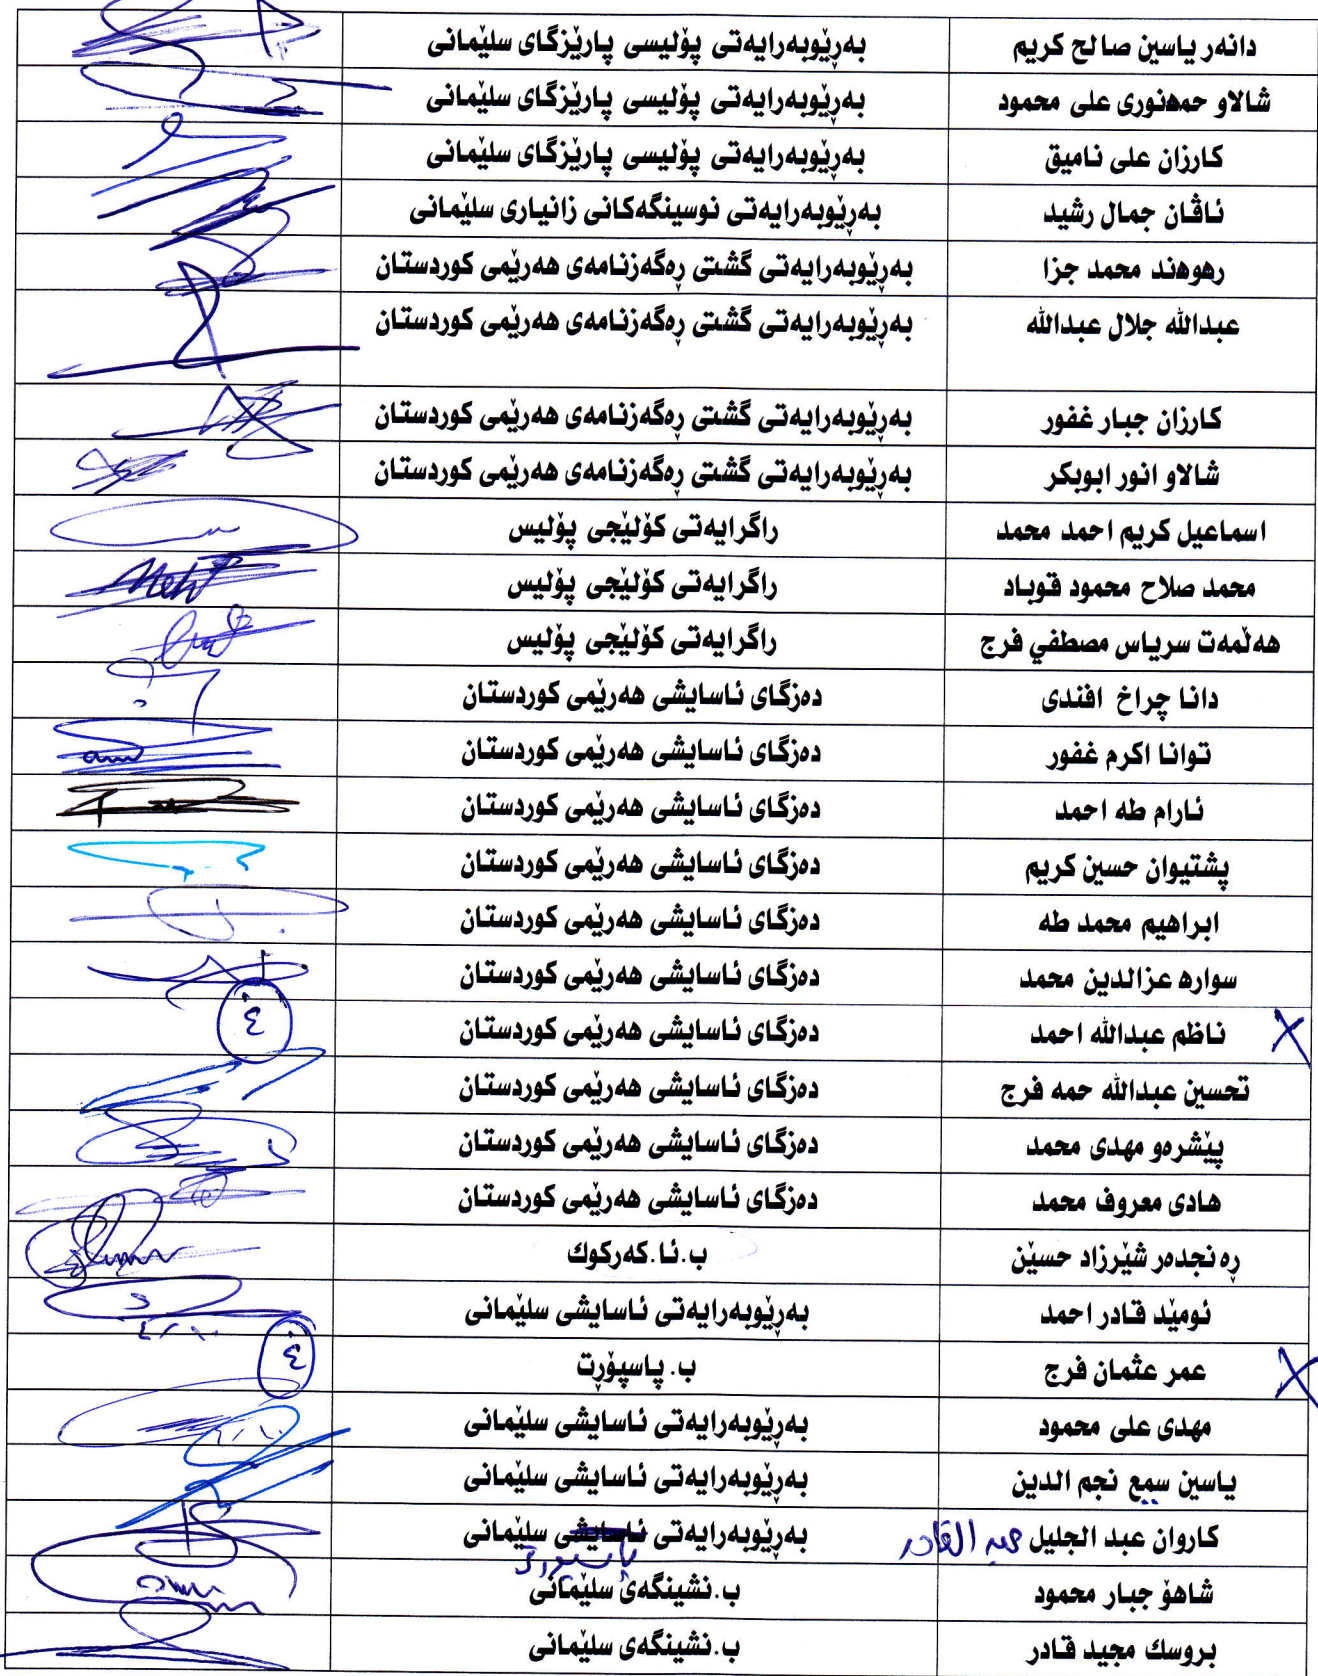 دانەر یاسین صالح کریم بەڕێوبەرایەتی پۆلیسی پارێزگای سلێمانی
شالاو حمەنوری علی محمود بەڕێوبەرایەتی پۆلیسی پارێزگای سلێمانی
کارزان علی نامیق بەڕێوبەرایەتی پۆلیسی پارێزگای سلێمانی
ئاڤان جمال رشید بەڕێوبەرایەتی نوسینگەکانی زانیاری سلێمانی
رەوەند محمد جزا بەڕێوبەرایەتی گشتی ڕەگەزنامەی هەرێمی کوردستان
عبدالله جلال عبدالله بەڕێوبەرایەتی گشتی ڕەگەزنامەی هەرێمی کوردستان
کارزان جبار غفور بەڕێوبەرایەتی گشتی ڕەگەزنامەی هەرێمی کوردستان
شالاو انور ابوبکر بەڕێوبەرایەتی گشتی ڕەگەزنامەی هەرێمی کوردستان
اسماعیل کریم احمد محمد راگرایەتی کۆلێجی پۆلیس
محمد صلاح محمود قوباد راگرایەتی کۆلێجی پۆلیس
هەڵمەت سریاس مصطفي فرج راگرایەتی کۆلێجی پۆلیس
دانا چراخ افندی دەزگای ئاسایشی هەرێمی کوردستان
توانا اکرم غفور دەزگای ئاسایشی هەرێمی کوردستان
ئارام طه احمد دەزگای ئاسایشی هەرێمی کوردستان
پشتیوان حسین کریم دەزگای ئاسایشی هەرێمی کوردستان
ابراهیم محمد طه دەزگای ئاسایشی هەرێمی کوردستان
سوارە عزالدین محمد دەزگای ئاسایشی هەرێمی کوردستان
ناظم عبدالله احمد دەزگای ئاسایشی هەرێمی کوردستان ٤
تحسین عبدالله حمه فرج دەزگای ئاسایشی هەرێمی کوردستان
پێشرەو مهدی محمد دەزگای ئاسایشی هەرێمی کوردستان
هادی معروف محمد دەزگای ئاسایشی هەرێمی کوردستان
ڕەنجدەر شێرزاد حسێن ب.ئا.کەرکوك
ئومێد قادر احمد بەڕێوبەرایەتی ئاسایشی سلێمانی
عمر عثمان فرج ب. پاسپۆڕت ٤
مهدی علی محمود بەڕێوبەرایەتی ئاسایشی سلێمانی
یاسین سمع نجم الدین بەڕێوبەرایەتی ئاسایشی سلێمانی
کاروان عبد الجلیل عبد القادر بەڕێوبەرایەتی ئاسایشی سلێمانی
شاهۆ جبار محمود ب.نشینگەی سلێمانی
بروسك مجید قادر ب.نشینگەی سلێمانی